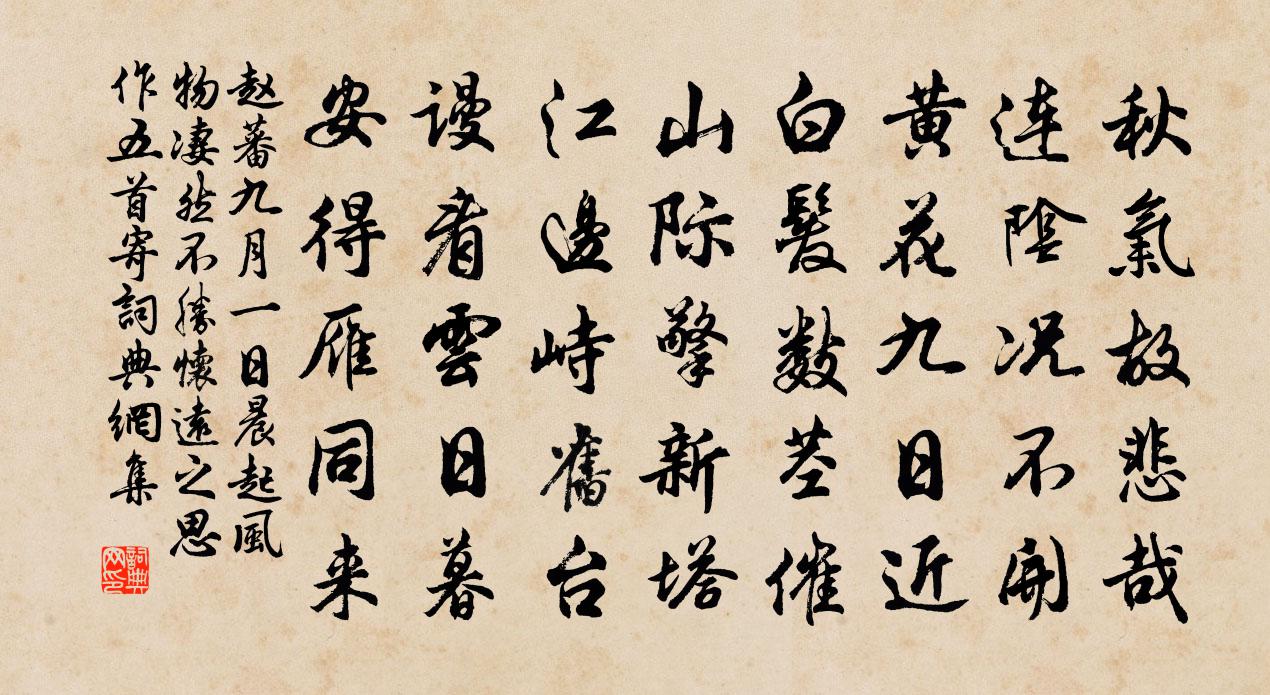 秋氣故悲哉
連陰况不開
黄花九日近
白髮數莖催
山际擎新塔
江邊峙舊台
謾看雲日暮
安得雁同来
赵蕃九月一日晨起風
物凄然不勝懷遠之思
作五首寄詞典網集
詞典
网印